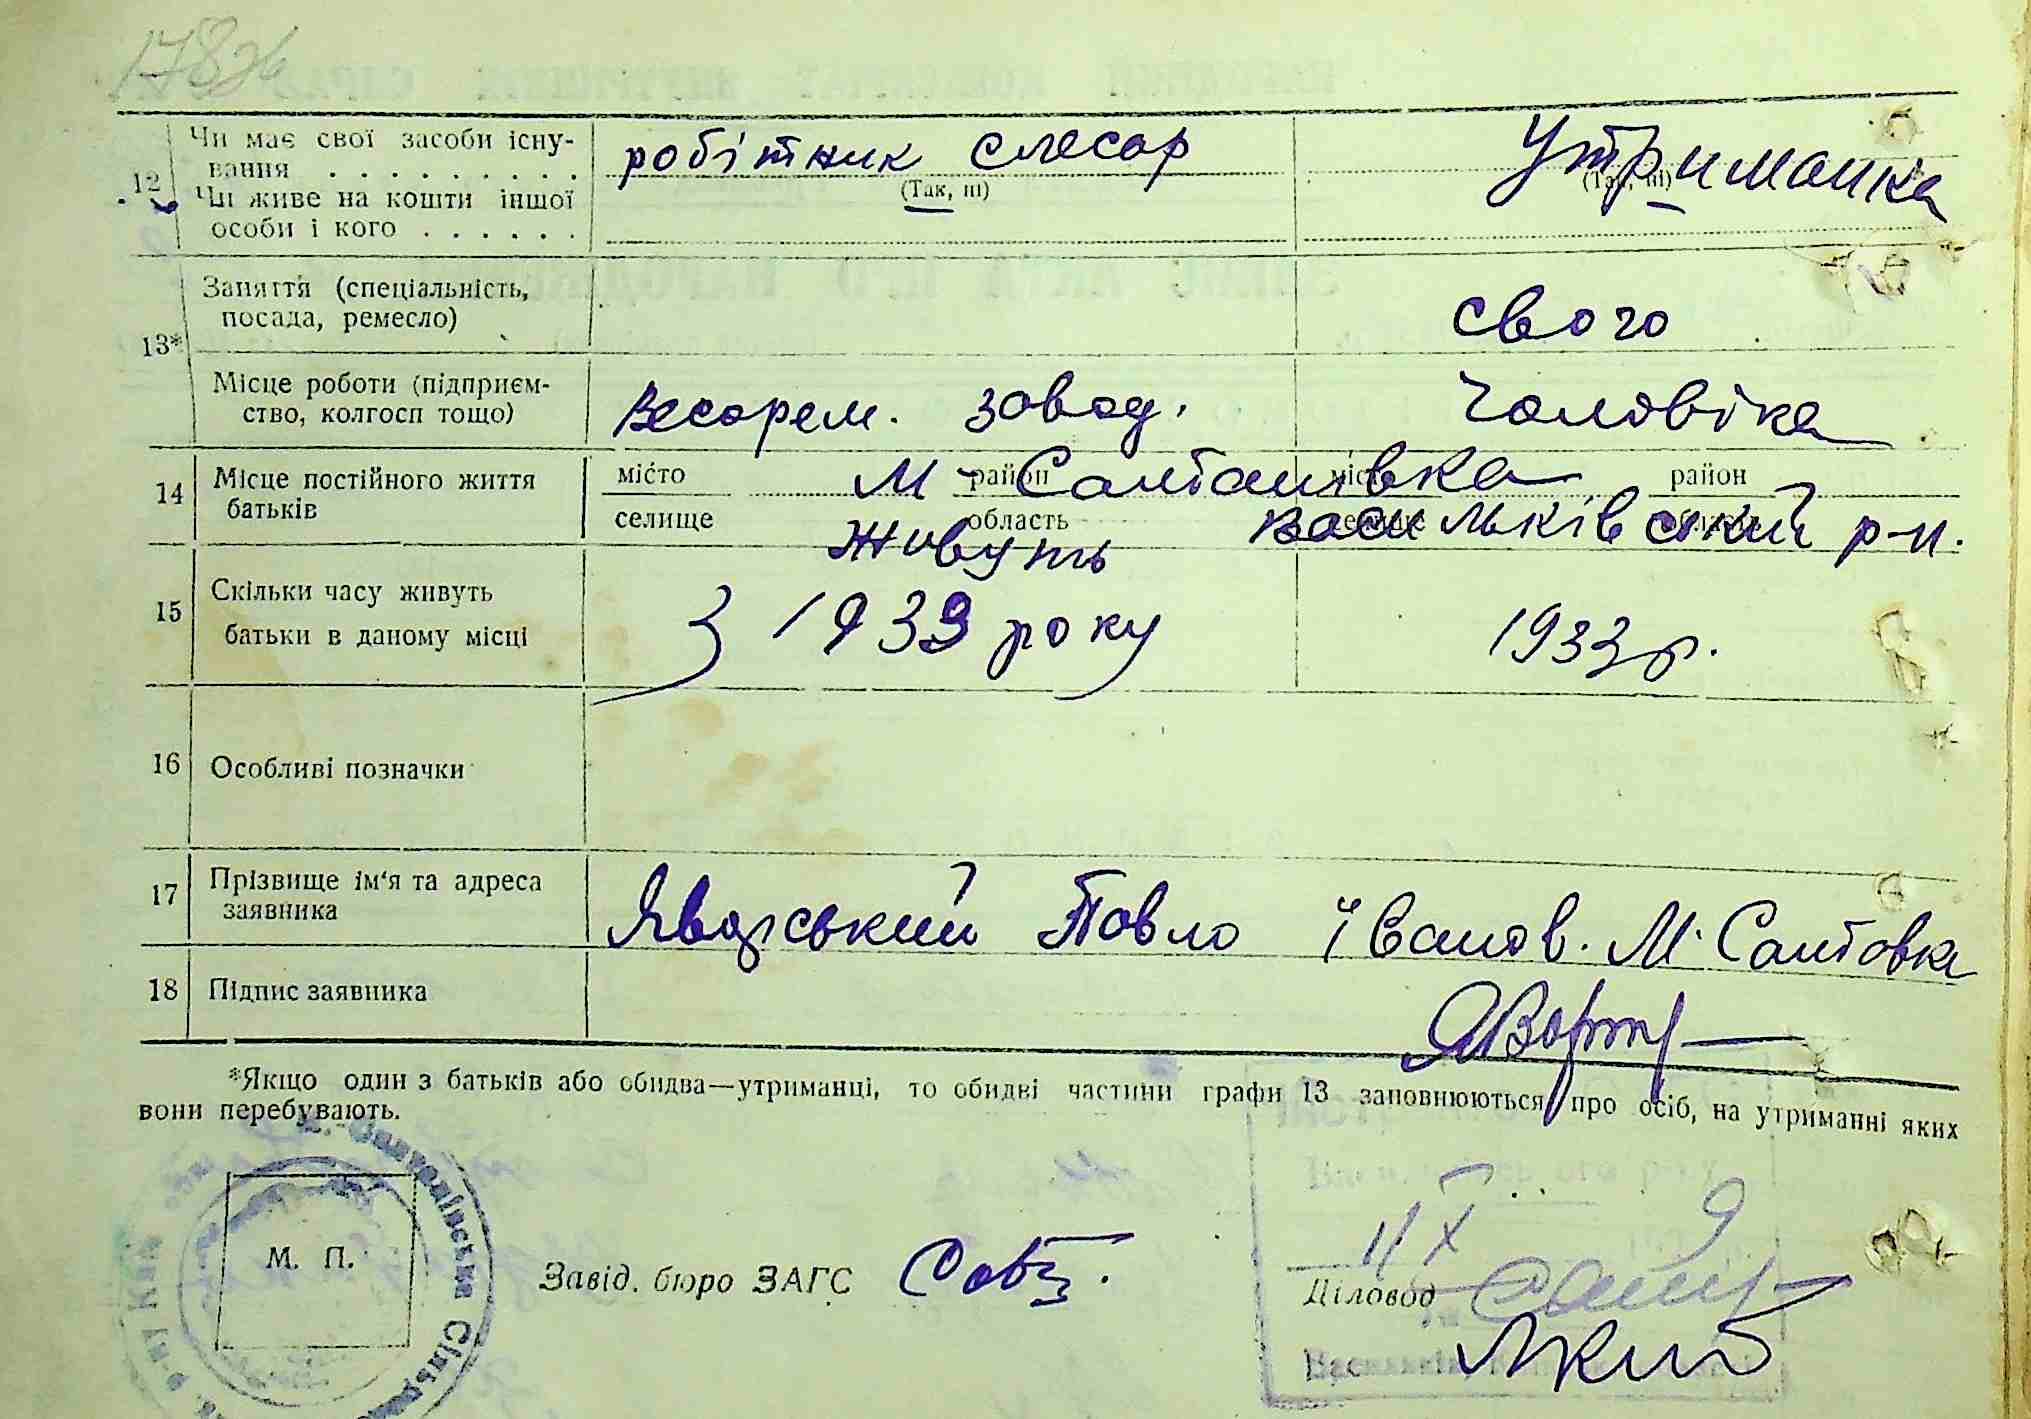 12
Чи має свої засоби існу-
вання . . . . . . . . .
Чи живе на кошти іншої
особи і кого . . . . . .
робітник слесар
(Так, ні)
Утриманка
(Так, ні)
13*
Заняття (спеціальність,
посада, ремесло)
свого
Місце роботи (підприєм-
ство, колгосп тощо)
Весорем. завод.
Чоловіка
14
Місце постійного життя
батьків
місто район місто район
М-Салтанівка
селище область селище область
Васильківський р-н.
15
Скільки часу живуть
батьки в даному місці
живуть
З 1939 року
1933 р.
16
Особливі позначки
17
Прізвище ім'я та адреса
заявника
Яворський Павло Іванов. М. Салтовка
18
Підпис заявника
*Якщо один з батьків або обидва—утриманці, то обидві частини графи 13 заповнюються про осіб, на утриманні яких
вони перебувають.
М. П.
Завід. бюро ЗАГС
Діловод